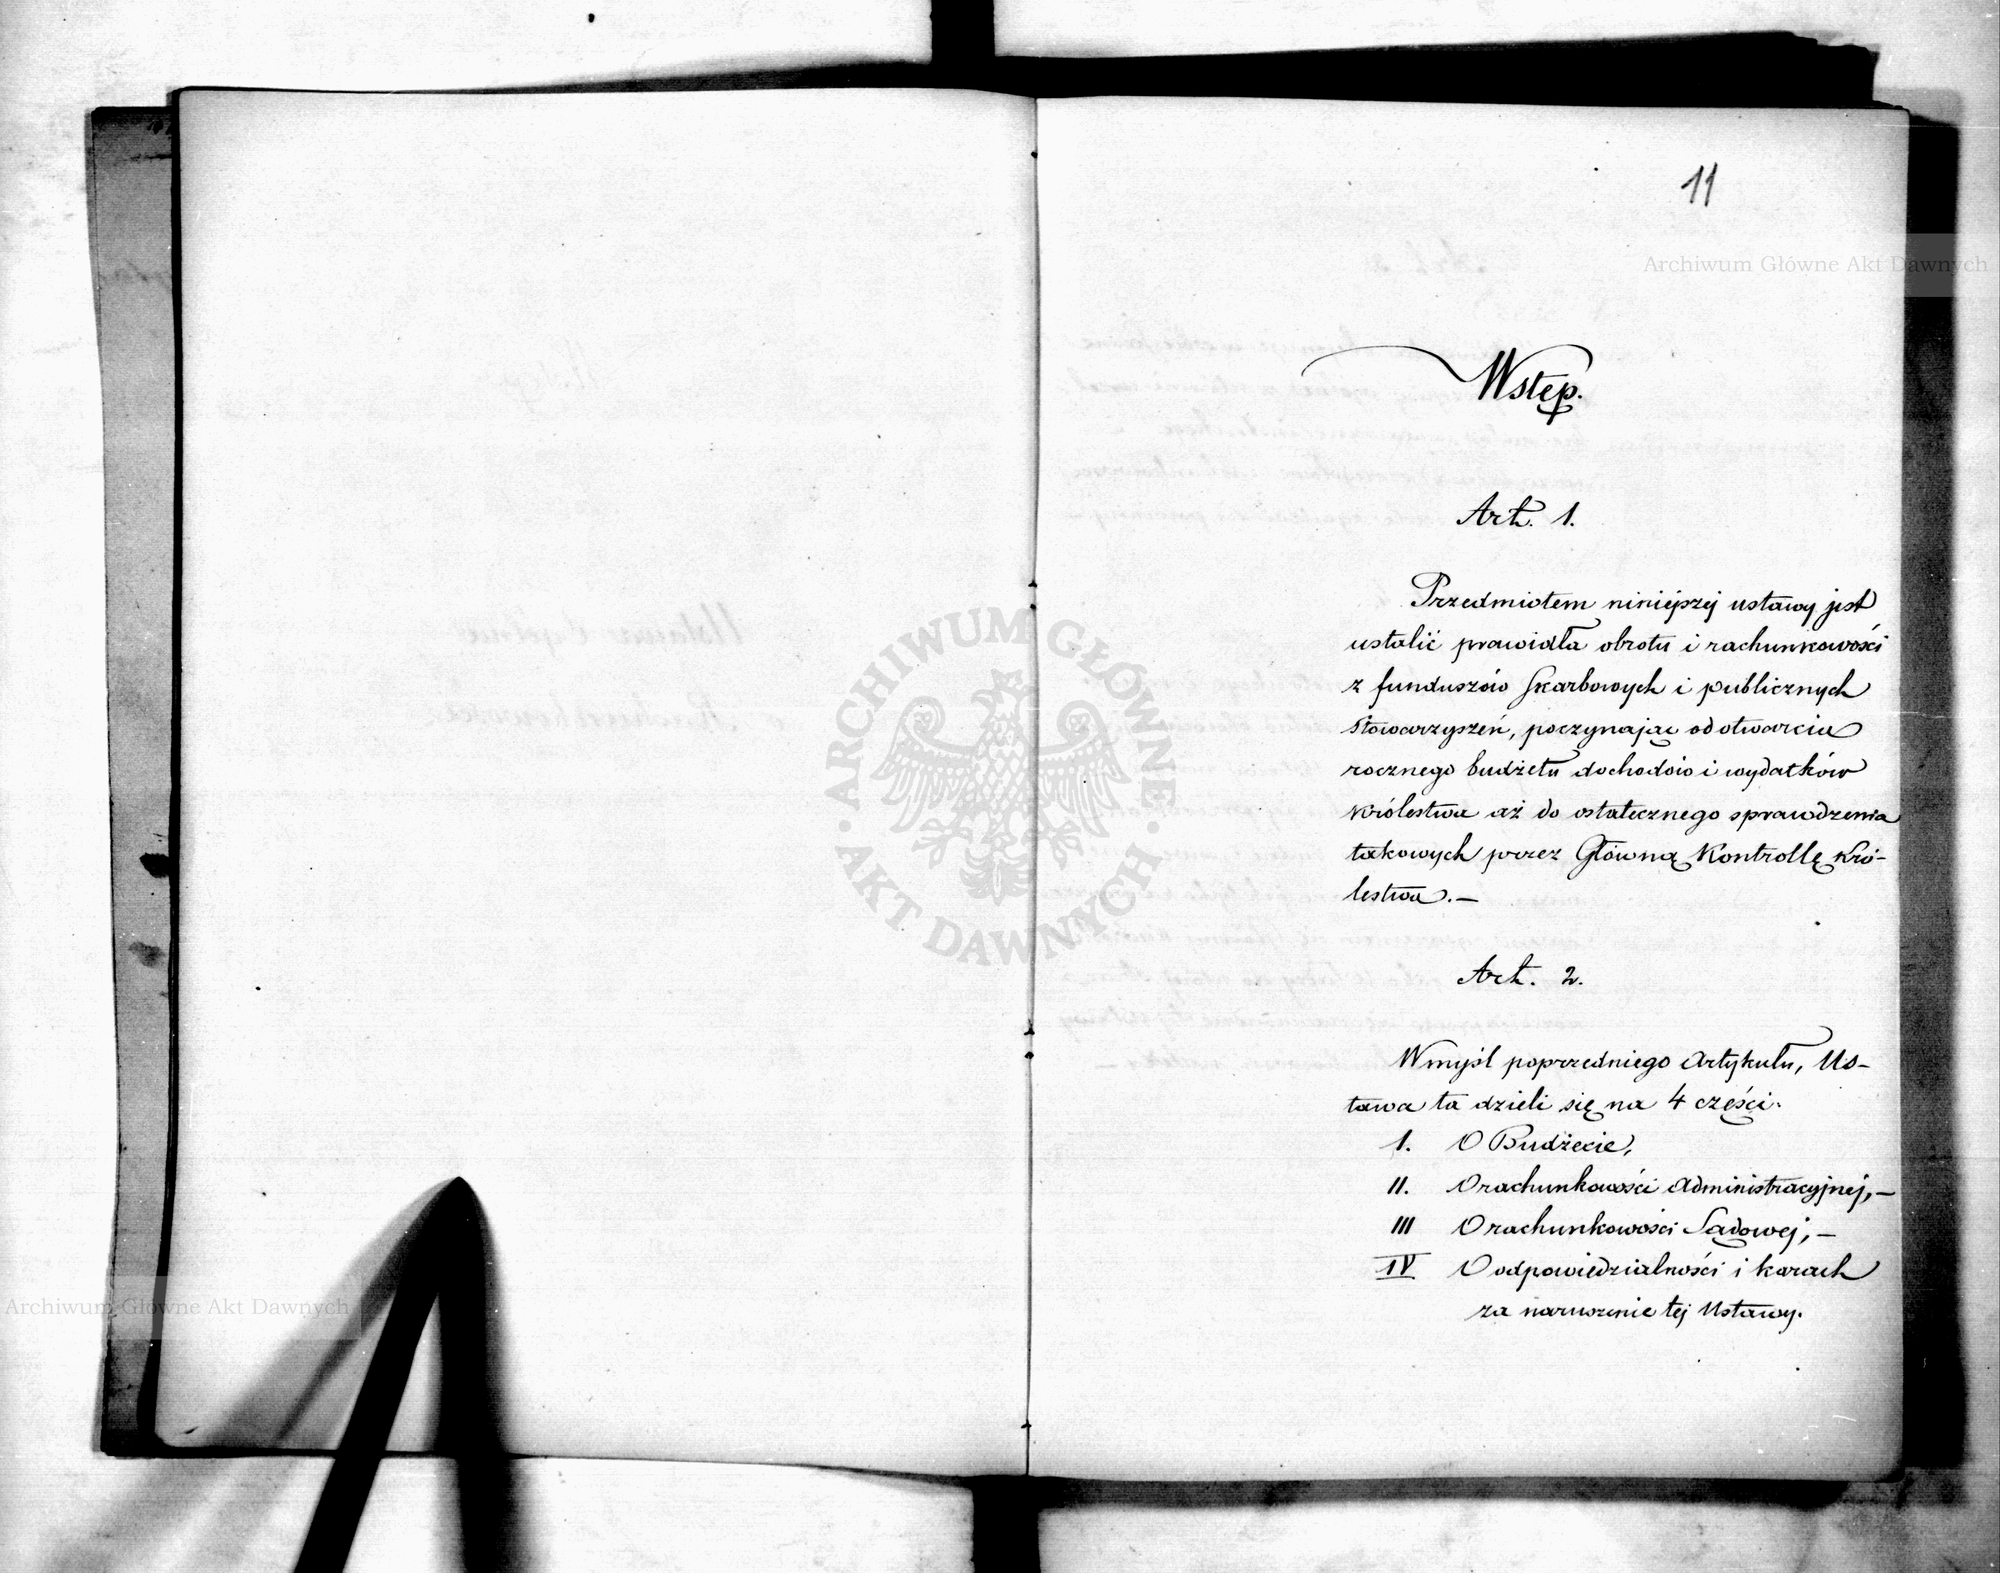 11
Archiwum Główne Akt Dawnych
Wstęp.
Art. 1.
Przedmiotem niniejszej ustawy jest
ustalić prawidła obrotu i rachunkowości
z funduszów Skarbowych i publicznych
Stowarzyszeń, poczynając od otwarcia
rocznego budżetu dochodów i wydatków
Królestwa aż do ostatecznego sprawdzenia
takowych przez Główną Kontrollę Kró-
lestwa.—
ARCHIWUM GŁÓWNE
· AKT DAWNYCH ·
Art. 2.
Wmyśl poprzedniego Artykułu, Us-
tawa ta dzieli się na 4 części.
I. O Budżecie,
II. O rachunkowości Administracyjnej,—
III O rachunkowości Sądowej,—
IV O odpowiedzialności i karach
za naruszenie tej Ustawy.
Archiwum Główne Akt Dawnych